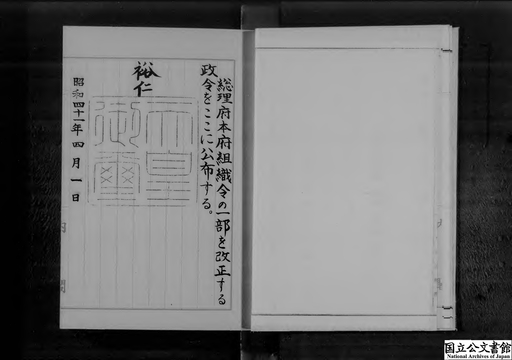 総理府本府組織令の一部を改正する
政令をここに公布する。
裕仁
天皇
御璽
昭和四十一年四月一日
国立公文書館
National Archives of Japan